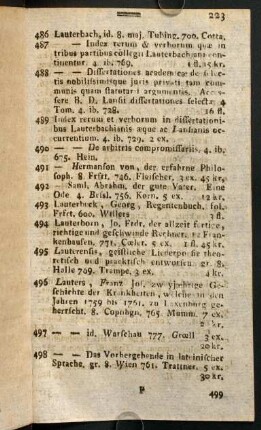 223
486 Lauterbach, id. 8. maj. Tubing. 700. Cotta.
487 — — Index rerum & verborum quæ in
tribus partibus collegii Lauterbachiani con-
tinentur. 4. ib. 769. 1 fl. 45 kr.
488 — — Dissertationes academicæ de
nobilissimisque juris privati tam com-
munis quam statutarii argumentis.
B. D. Laufii dissertationes selectæ 4
Tom. 4. ib. 728. 16 fl.
489 Index rerum et verborum in dissertationi-
bus Lauterbachianis aque ac Laufianis oc-
currentium. 4. ib. 729. 2 ex.
490 — — De arbitris compromissariis. 4. ib.
675. Hein.
491 — Hermanson von, der erfahrne Philo-
soph. 8. Frft. 746. Fleischer. 3 ex. 45 kr.
492 — Saml. Abrahm. der gute Vater. Eine
Ode 4. Bresl. 756. Korn. 5 ex. 12 kr.
493 Lauterbeck, Georg, Regentenbuch. fol.
Frft. 600. Willers 3 fl.
494 Lauterborn, Jo. Fridr. der allzeit fertige,
richtige und geschwinde Rechner. 12 Fran-
kenhausen. 771. Cœler. 5 ex. 1 fl. 45 kr.
495 Lauterensis, geistliche Liederpo theo-
retisch und practisch entworfen. gr. 8.
Halle 769. Trampe. 3 ex. 4 kr.
496 Lauters, Franz Jos. zweyjährige Ge-
schichte der Krankheiten, welche in den
Jahren 1759 bis 1761. zu Laxenburg ge-
herrscht. 8. Coppnhgn. 765. Mumm. 7 ex.
kr.
497 — — id. Warschau 777. Grœll 3 ex.
20 kr.
498 — — Das Vorhergehende in lateinischer
Sprache, gr. 8. Wien 761. Trattner. 5 ex.
30 kr.
P
499